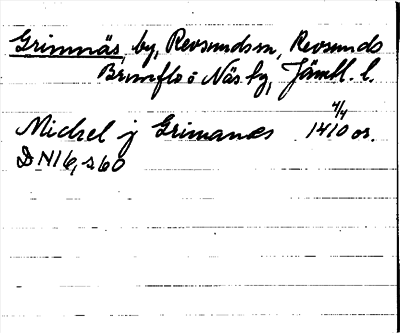 Grimnäs, by, Revsunds sn, Revsunds
Brunflo o Näs tg, Jämtl. l.
4/4
Mickel j Grimanæs 1410 or.
DN16, s 60